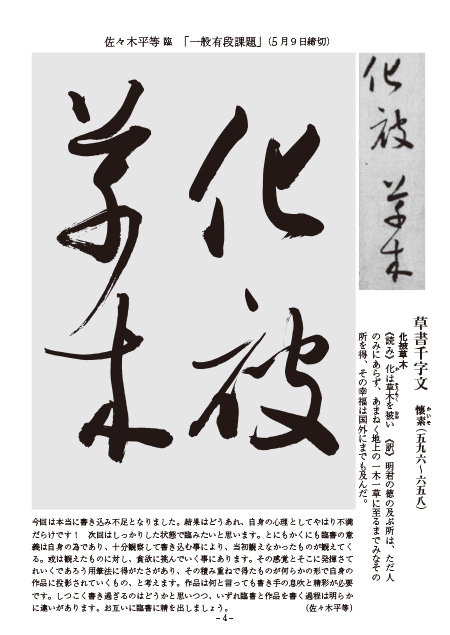 佐々木平等 臨 「一般有段課題」（5月9日締切）
化被
草木
化被草木
草書千字文　懐素（五九六〜六五八）
かいそ
化被草木
《読み》化は草木を被い　《訳》明君の徳の及ぶ所は、ただ人
のみにあらず、あまねく地上の一木一草に至るまでみなその
所を得、その幸福は国外にまでも及んだ。
今回は本当に書き込み不足となりました。結果はどうあれ、自身の心理としてやはり不満
だらけです！　次回はしっかりした状態で臨みたいと思います。とにもかくにも臨書の意
義は自身の為であり、十分観察して書き込む事により、当初観えなかったものが観えてく
る。或は観えたものに対し、貪欲に挑んでいく事にあります。その感覚とそこに発揮さて
れいくであろう用筆法に得がたさがあり、その積み重ねで得たものが何らかの形で自身の
作品に投影されていくもの、と考えます。作品は何と言っても書き手の息吹と精彩が必要
です。しつこく書き過ぎるのはどうかと思いつつ、いずれ臨書と作品を書く過程は明らか
に違いがあります。お互いに臨書に精を出しましょう。　（佐々木平等）
－4－